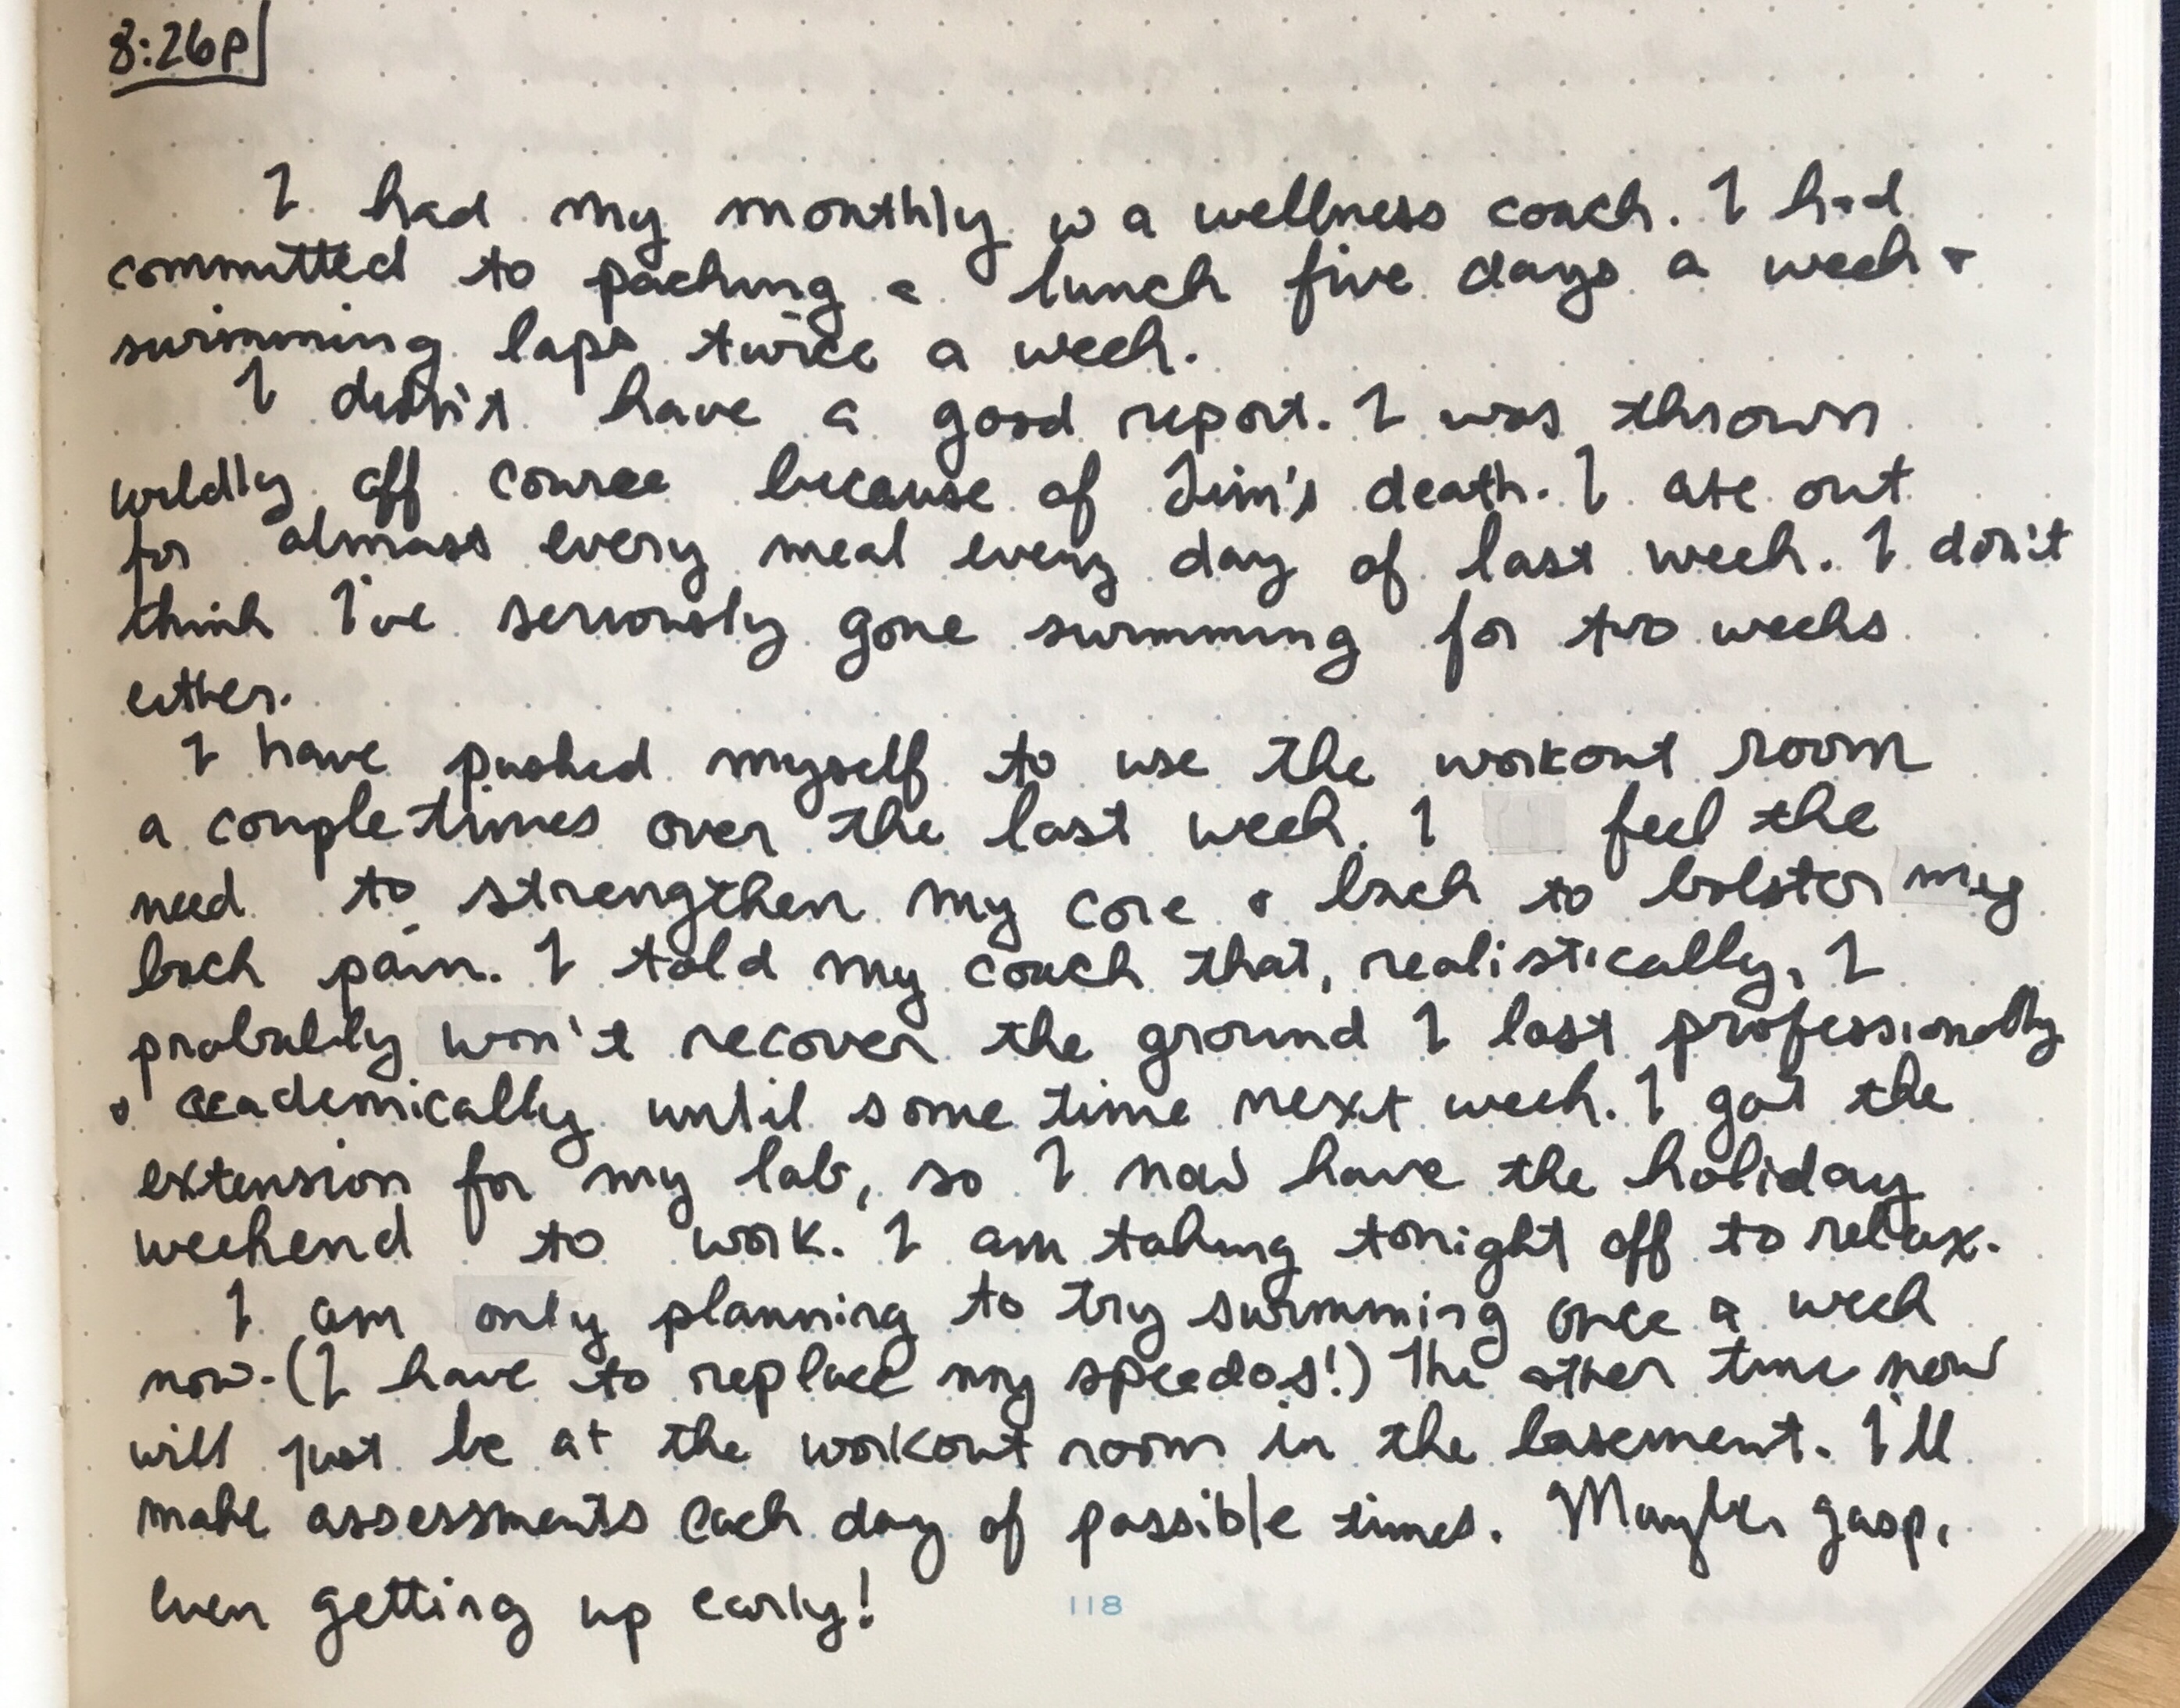 8:26p
I had my monthly w a wellness coach. I had
committed to packing a lunch five days a week +
swimming laps twice a week.
I didn't have a good report. I was thrown
wildly off course because of Jim's death. I ate out
for almost every meal every day of last week. I don't
think I've seriously gone swimming for two weeks
either.
I have pushed myself to use the workout room
a couple times over the last week. I feel the
need to strengthen my core + back to bolster my
back pain. I told my coach that, realistically, I
probably won't recover the ground I lost professionally
+ academically until some time next week. I got the
extension for my lab, so I now have the holiday
weekend to work. I am taking tonight off to relax.
I am only planning to try swimming once a week
now. (I have to replace my speedos!) The other time now
will just be at the workout room in the basement. I'll
make assessments each day of possible times. Maybe, gasp,
even getting up early!
118